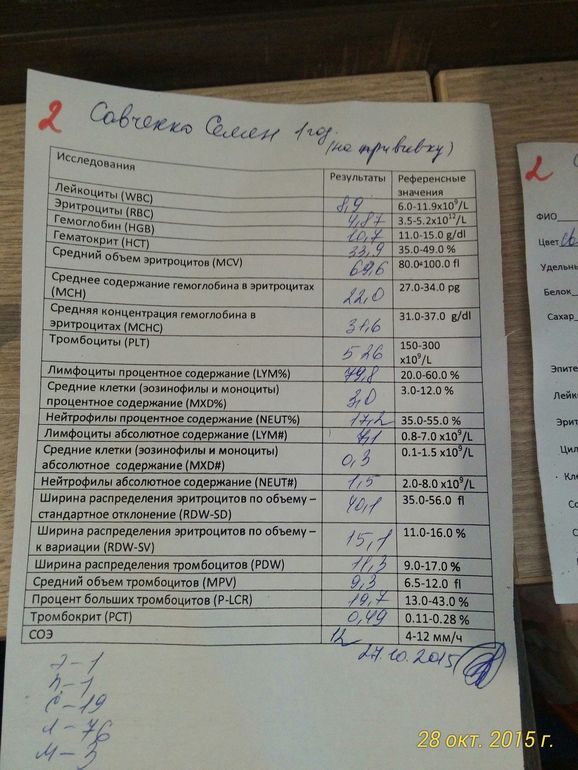 2 Савченко Семен 1 год.
(на прививку)
Исследования Результаты Референсные значения
Лейкоциты (WBC) 8,9 6.0-11.9x10⁹/L
Эритроциты (RBC) 4,87 3.5-5.2x10¹²/L
Гемоглобин (HGB) 10,7 11.0-15.0 g/dl
Гематокрит (HCT) 33,9 35.0-49.0 %
Средний объем эритроцитов (MCV) 69,6 80.0-100.0 fl
Среднее содержание гемоглобина в эритроцитах
(MCH) 22,0 27.0-34.0 pg
Средняя концентрация гемоглобина в
эритроцитах (MCHC) 31,6 31.0-37.0 g/dl
Тромбоциты (PLT) 526 150-300
x10⁹/L
Лимфоциты процентное содержание (LYM%) 79,8 20.0-60.0 %
Средние клетки (эозинофилы и моноциты)
процентное содержание (MXD%) 3,0 3.0-12.0 %
Нейтрофилы процентное содержание (NEUT%) 17,2 35.0-55.0 %
Лимфоциты абсолютное содержание (LYM#) 7,1 0.8-7.0 x10⁹/L
Средние клетки (эозинофилы и моноциты)
абсолютное содержание (MXD#) 0,3 0.1-1.5 x10⁹/L
Нейтрофилы абсолютное содержание (NEUT#) 1,5 2.0-8.0 x10⁹/L
Ширина распределения эритроцитов по объему –
стандартное отклонение (RDW-SD) 40,1 35.0-56.0 fl
Ширина распределения эритроцитов по объему –
к вариации (RDW-SV) 15,1 11.0-16.0 %
Ширина распределения тромбоцитов (PDW) 11,3 9.0-17.0 %
Средний объем тромбоцитов (MPV) 9,3 6.5-12.0 fl
Процент больших тромбоцитов (P-LCR) 19,7 13.0-43.0 %
Тромбокрит (PCT) 0,49 0.11-0.28 %
СОЭ 12 4-12 мм/ч
27.10.2015
Э-1
П-1
С-19
Л-76
М-3
2
ФИО
Цвет
Удельн
Белок
Сахар
Эпите
Лейк
Эрит
Цил
Кле
Со
С
28 окт. 2015 г.